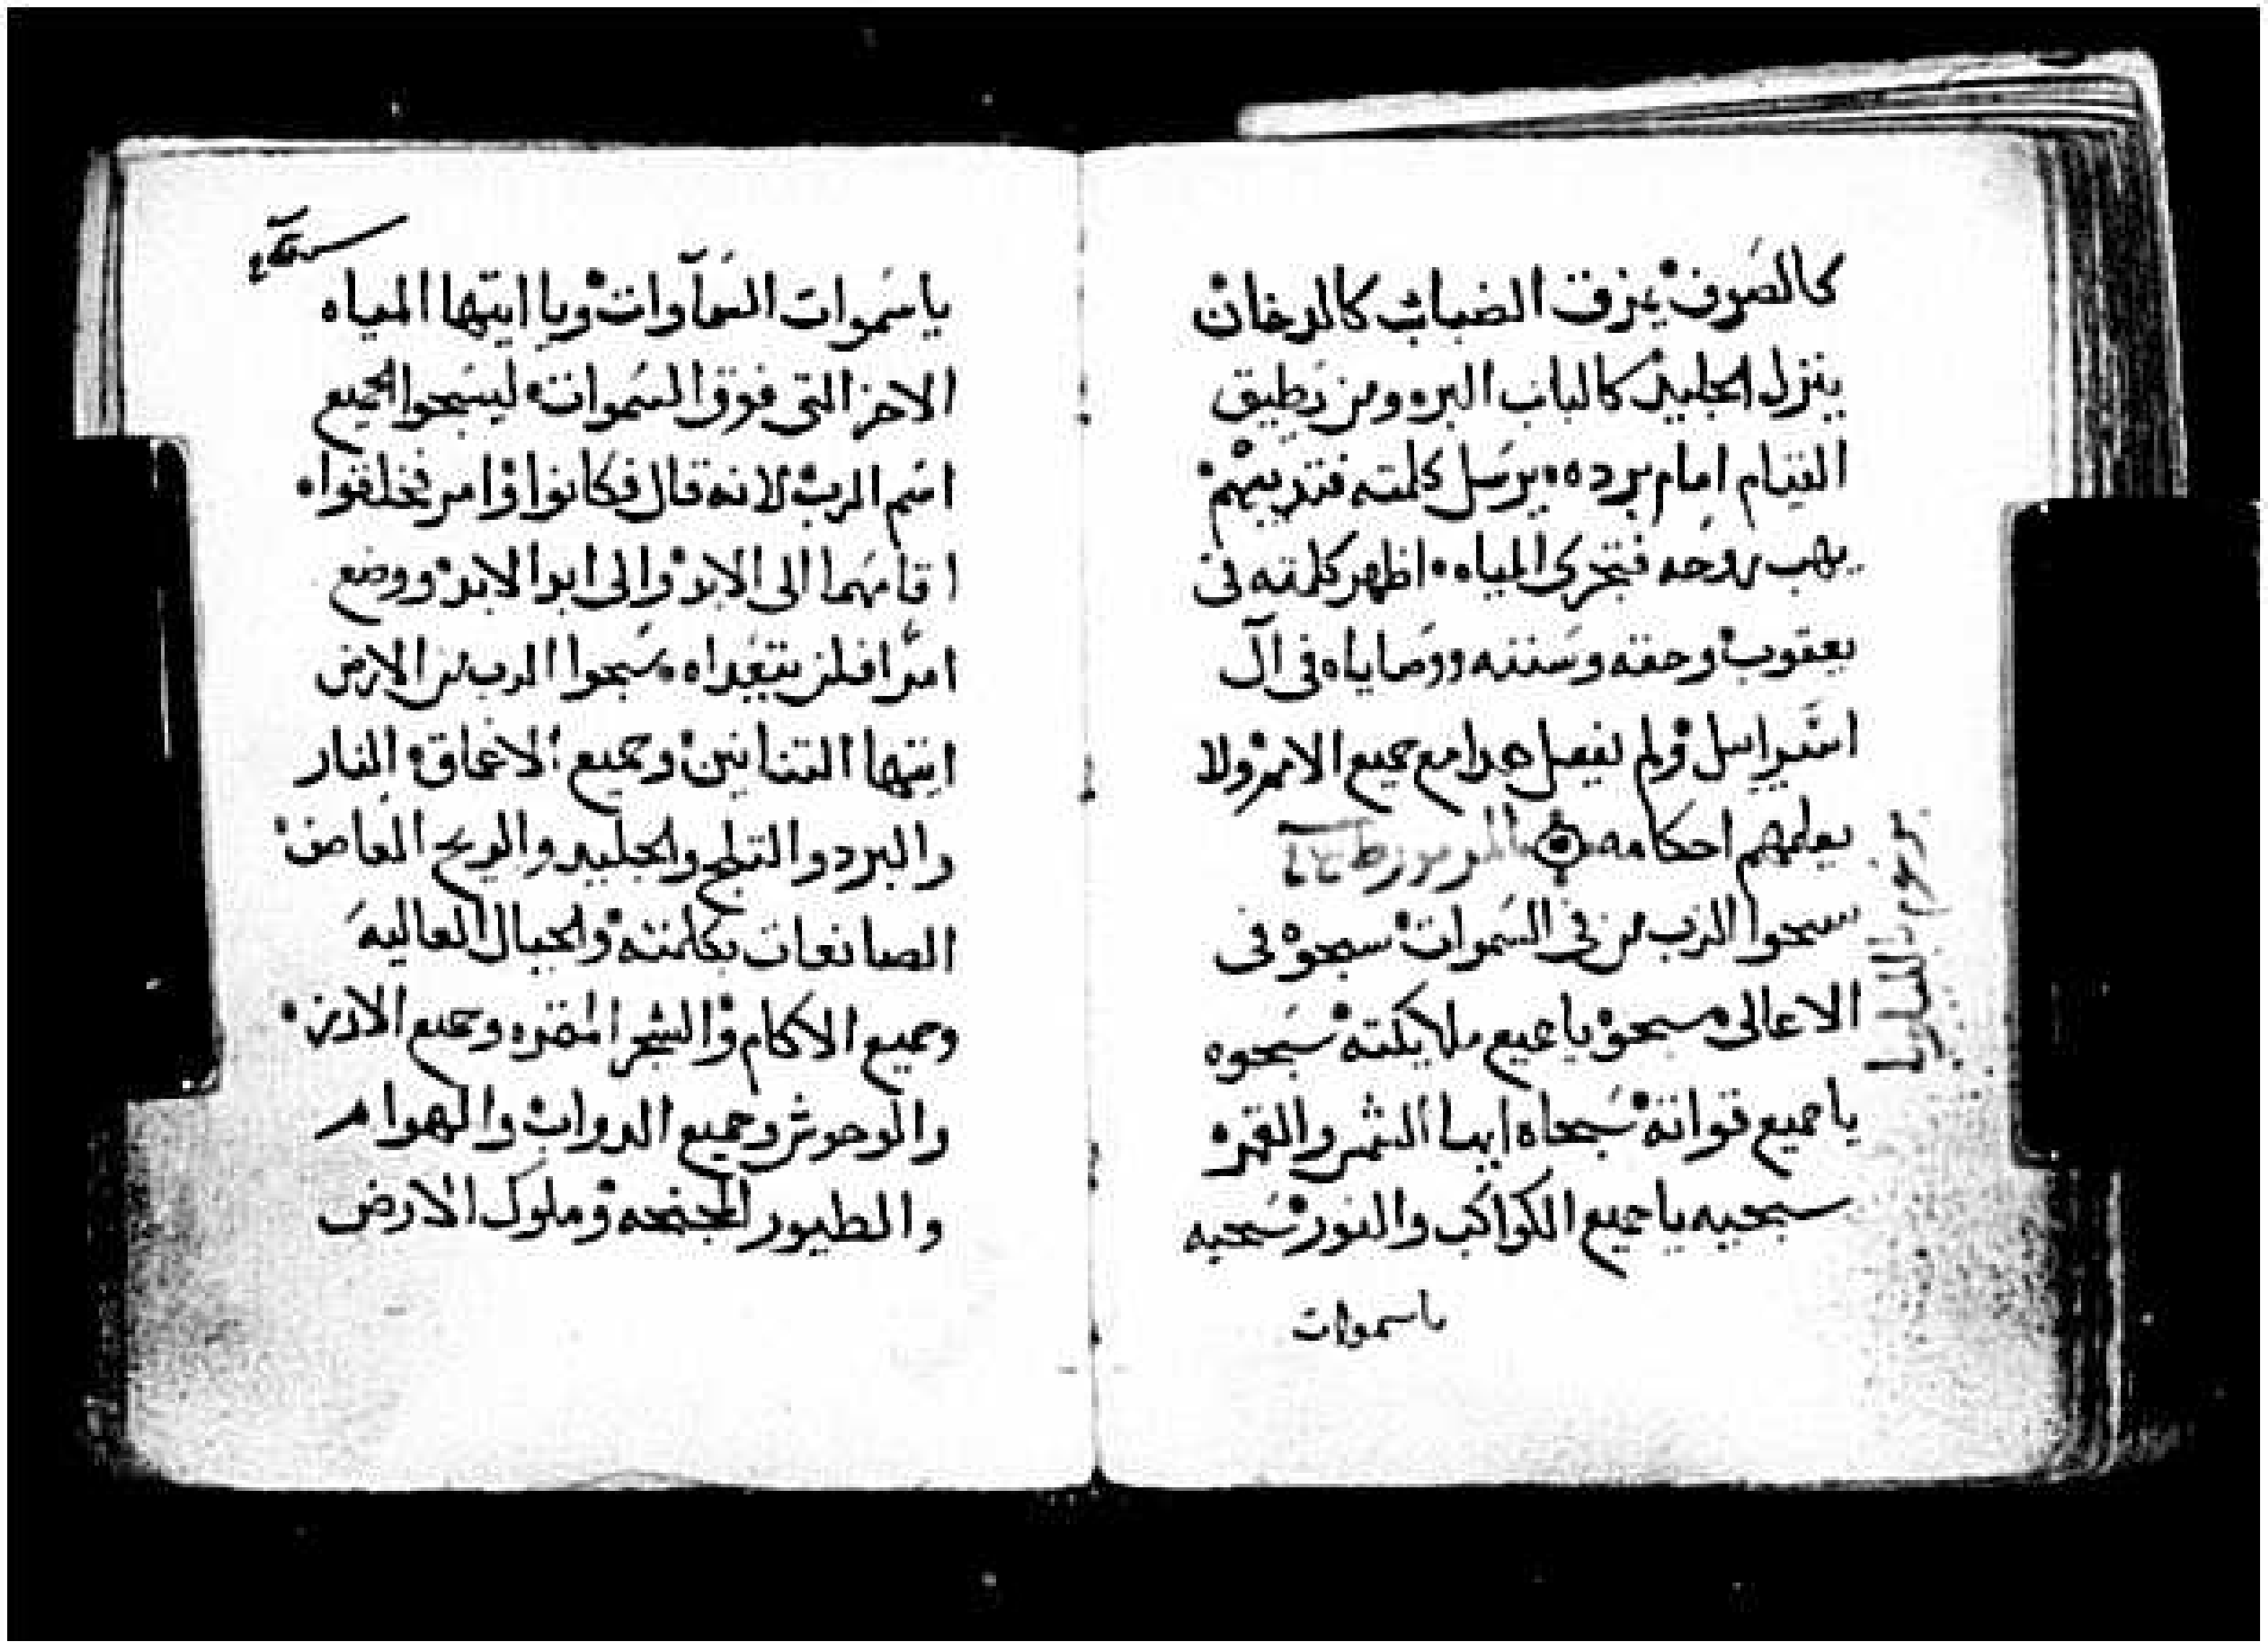 كالصوف يذرق الضباب كالدخان
ينزل الجليد كالباب البر ومن يطيق
القيام امام برده يرسل كلمته فتذيبهم
يهب روحه فتجرى المياه اظهر كلمته فى
يعقوب وحقه وسننه ووصاياه فى آل
اسراييل ولم يفعل هذا مع جميع الامم ولا
يعلمهم احكامه المزمور
سبحوا الرب من فى السموات سبحوه فى
الاعالى سبحوه يا جميع ملايكته سبحوه
يا جميع قواته سبحاه ايها الشمس والقمر
سبحيه يا جميع الكواكب والنور سبحيه
ياسموات
ياسموات السماوات ويا ايتها المياه
الاخر التى فوق السموات ليسبحوا الجميع
اسم الرب لانه قال فكانوا وامر فخلقوا
اقامهما الى الابد والى ابد الابد ووضع
امرا فلن يتعداه سبحوا الرب من الارض
ايتها التنانين وجميع الاعماق النار
والبرد والثلج والجليد والريح العاصف
الصانعات بكلمته والجبال العاليه
وجميع الاكام والشجر المثمره وجميع الارز
والوحوش وجميع الدواب والهوام
والطيور المجنحه وملوك الارض